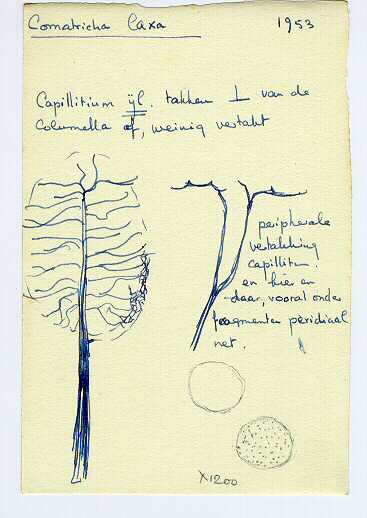 Comatricha laxa 1953
Capillitium ijl. takken ⊥ van de
Columella af, weinig vertakt
periphere
vertakking
capillitium.
en hier en
daar, vooral onder
fragmenten peridiaal
net.
X1200